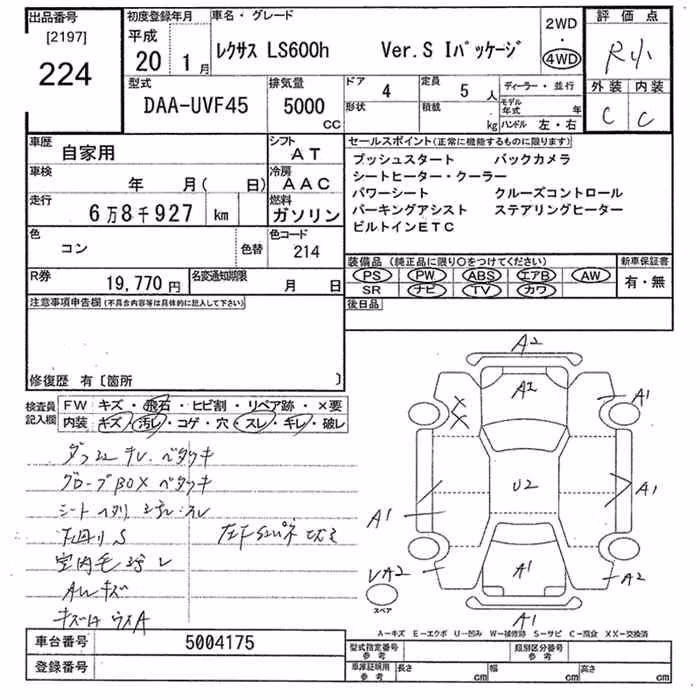 出品番号
[2197]
224
初度登録年月
平成
20 1月
車名・グレード
レクサス LS600h Ver.S Iパッケージ
2WD
・
4WD
評価点
R
外装 内装
C C
型式
DAA-UVF45
排気量
5000
CC
ドア 4
定員 5 人
形状
積載 kg
ディーラー・並行
モデル年式 年
ハンドル 左・右
車歴
自家用
シフト
AT
車検
年 月( 日)
冷房
AAC
走行
6万8千927 km
燃料
ガソリン
色
コン
色替
色コード
214
R券
19,770円
名変通知期限
月 日
セールスポイント(正常に機能するものに限ります)
プッシュスタート バックカメラ
シートヒーター・クーラー
パワーシート クルーズコントロール
パーキングアシスト ステアリングヒーター
ビルトインETC
装備品(純正品に限り○をつけてください)
新車保証書
PS PW ABS エアB AW
SR ナビ TV カワ
有・無
後日品
注意事項申告欄(不具合内容等は具体的に記入して下さい)
修復歴 有〔箇所 〕
検査員
記入欄
FW キズ・飛石・ヒビ割・リペア跡・×要
内装 キズ・汚レ・コゲ・穴・スレ・キレ・破レ
グローブBOX ベタツキ
AWキズ
A2
A2
A1
A1
U2
A1
A1
A2
A2
A1
スペア
A-キズ E-エクボ U-凹み W-補修跡 S-サビ C-腐食 XX-交換済
車台番号 5004175
登録番号
型式指定番号
参考
類別区分番号
参考
車庫証明用
参考
長さ cm 幅 cm 高さ cm